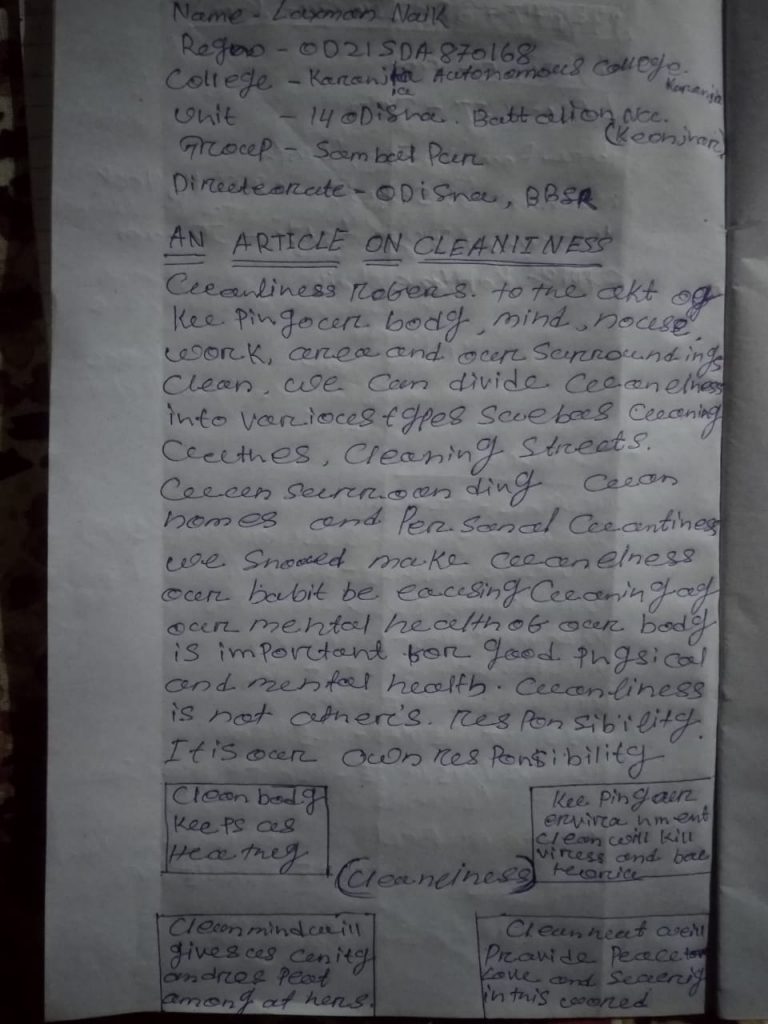 Name - Laxman Naik
Regno - OD21SDA870168
College - Karanjia Autonomous College.
Karanjia
Unit - 14 ODisha. Battalion Ncc.
(Keonjhar)
Group - Sambal Pur
Directeorate - ODisha, BBSR
AN ARTICLE ON CLEANLINESS
Cleanliness refers. to the akt of
Kee Ping our body, mind, house.
work, area and our Surround ings
Clean. we can divide Cleanelness
into various types Such as Cleaning
Cleethes, Cleaning Streets.
Clean surroun ding Clean
homes and Per Sonal Cleantiness
we Should make cleanelness
our habit be causing Cleaning of
our mental health of our body
is important for good Physical
and mental health. Cleanliness
is not other's. res Pon sibility.
It is our own res Ponsibility
Clean body
Keeps us
Heathey
Kee Ping our
envira nment
clean will kill
viruss and bac
teoria
(Cleaneiness)
Clean mind will
gives us
and res Peat
among at hers.
Clean heat will
Provide Peace
Love and
in this world